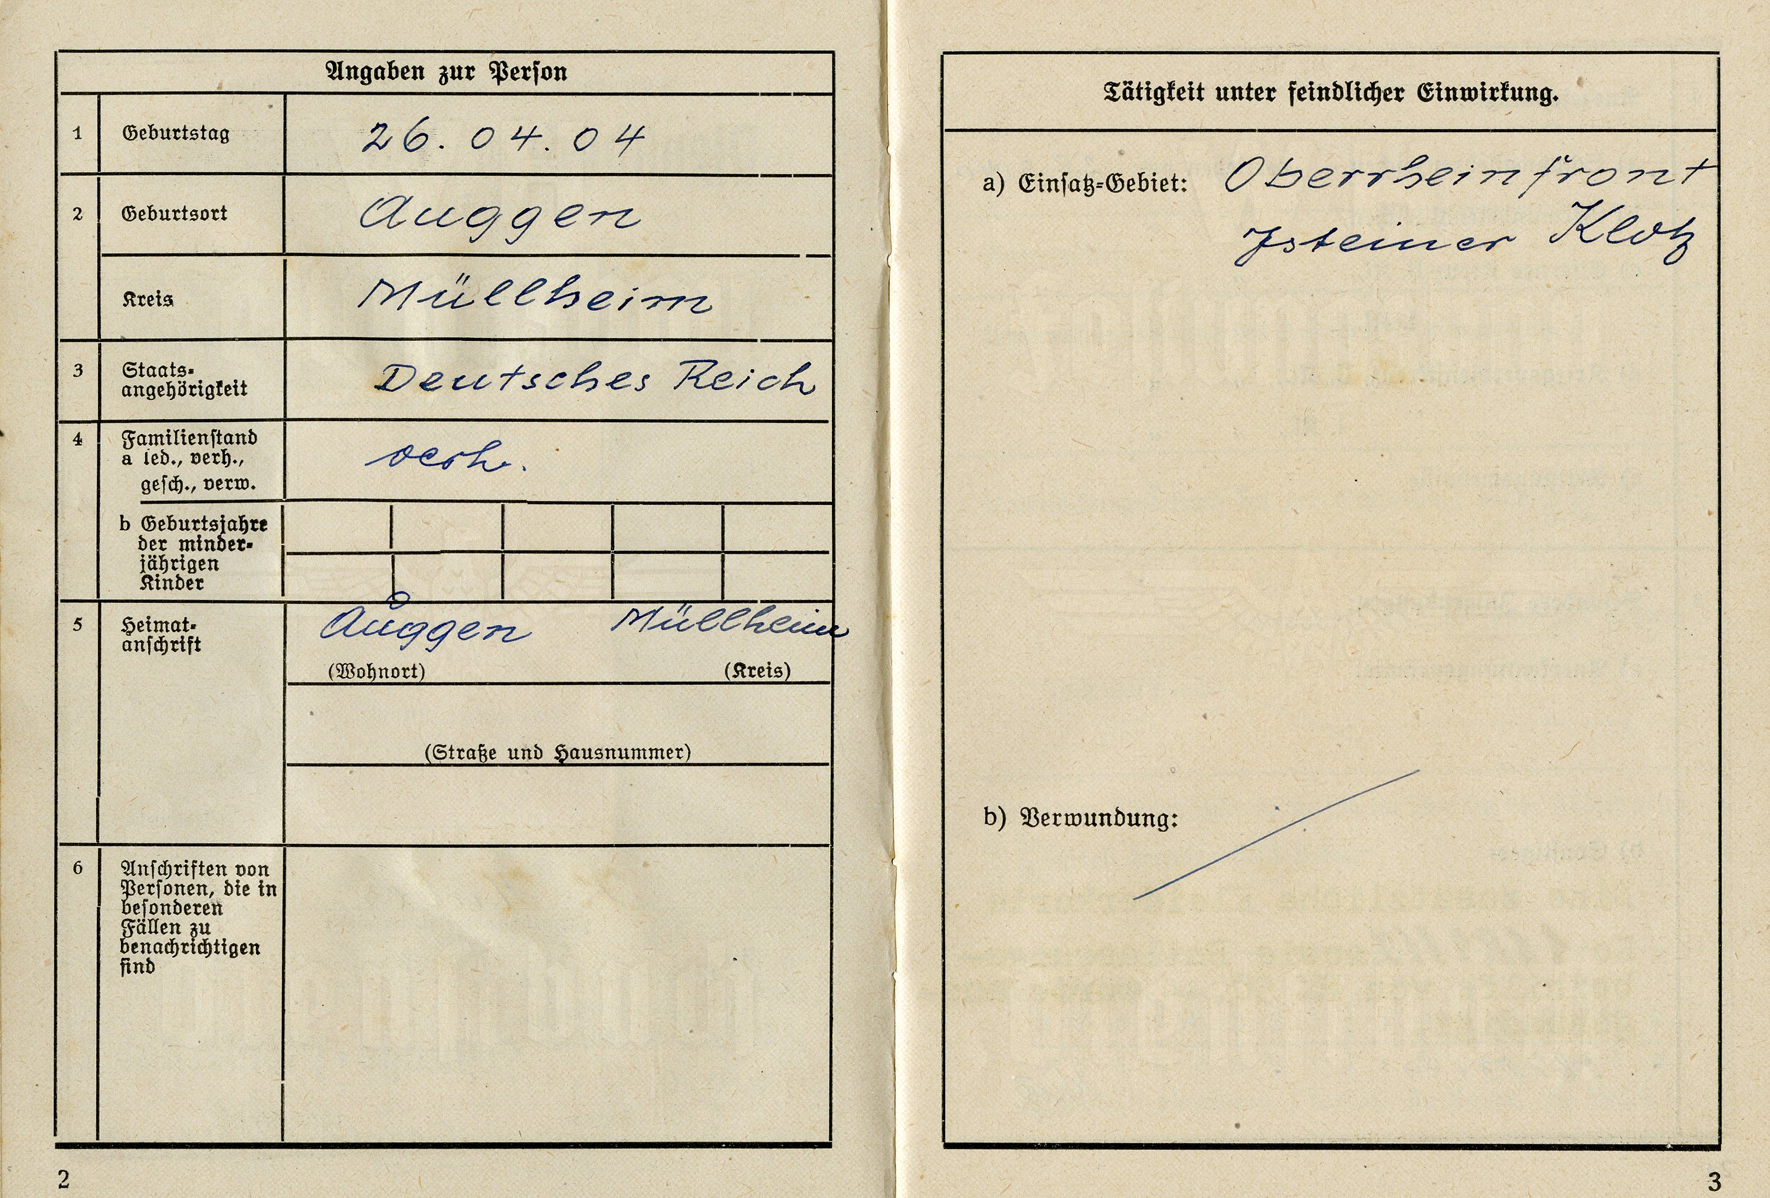 Angaben zur Person
1 Geburtstag 26. 04. 04
2 Geburtsort Auggen
Kreis Müllheim
3 Staats-
angehörigkeit Deutsches Reich
4 Familienstand
a led., verh.,
gesch., verw. verh.
b Geburtsjahre
der minder-
jährigen
Kinder
5 Heimat-
anschrift Auggen Müllheim
(Wohnort) (Kreis)
(Straße und Hausnummer)
6 Anschriften von
Personen, die in
besonderen
Fällen zu
benachrichtigen
sind
2
Tätigkeit unter feindlicher Einwirkung.
a) Einsatz-Gebiet: Oberrheinfront
Isteiner Klotz
b) Verwundung:
3